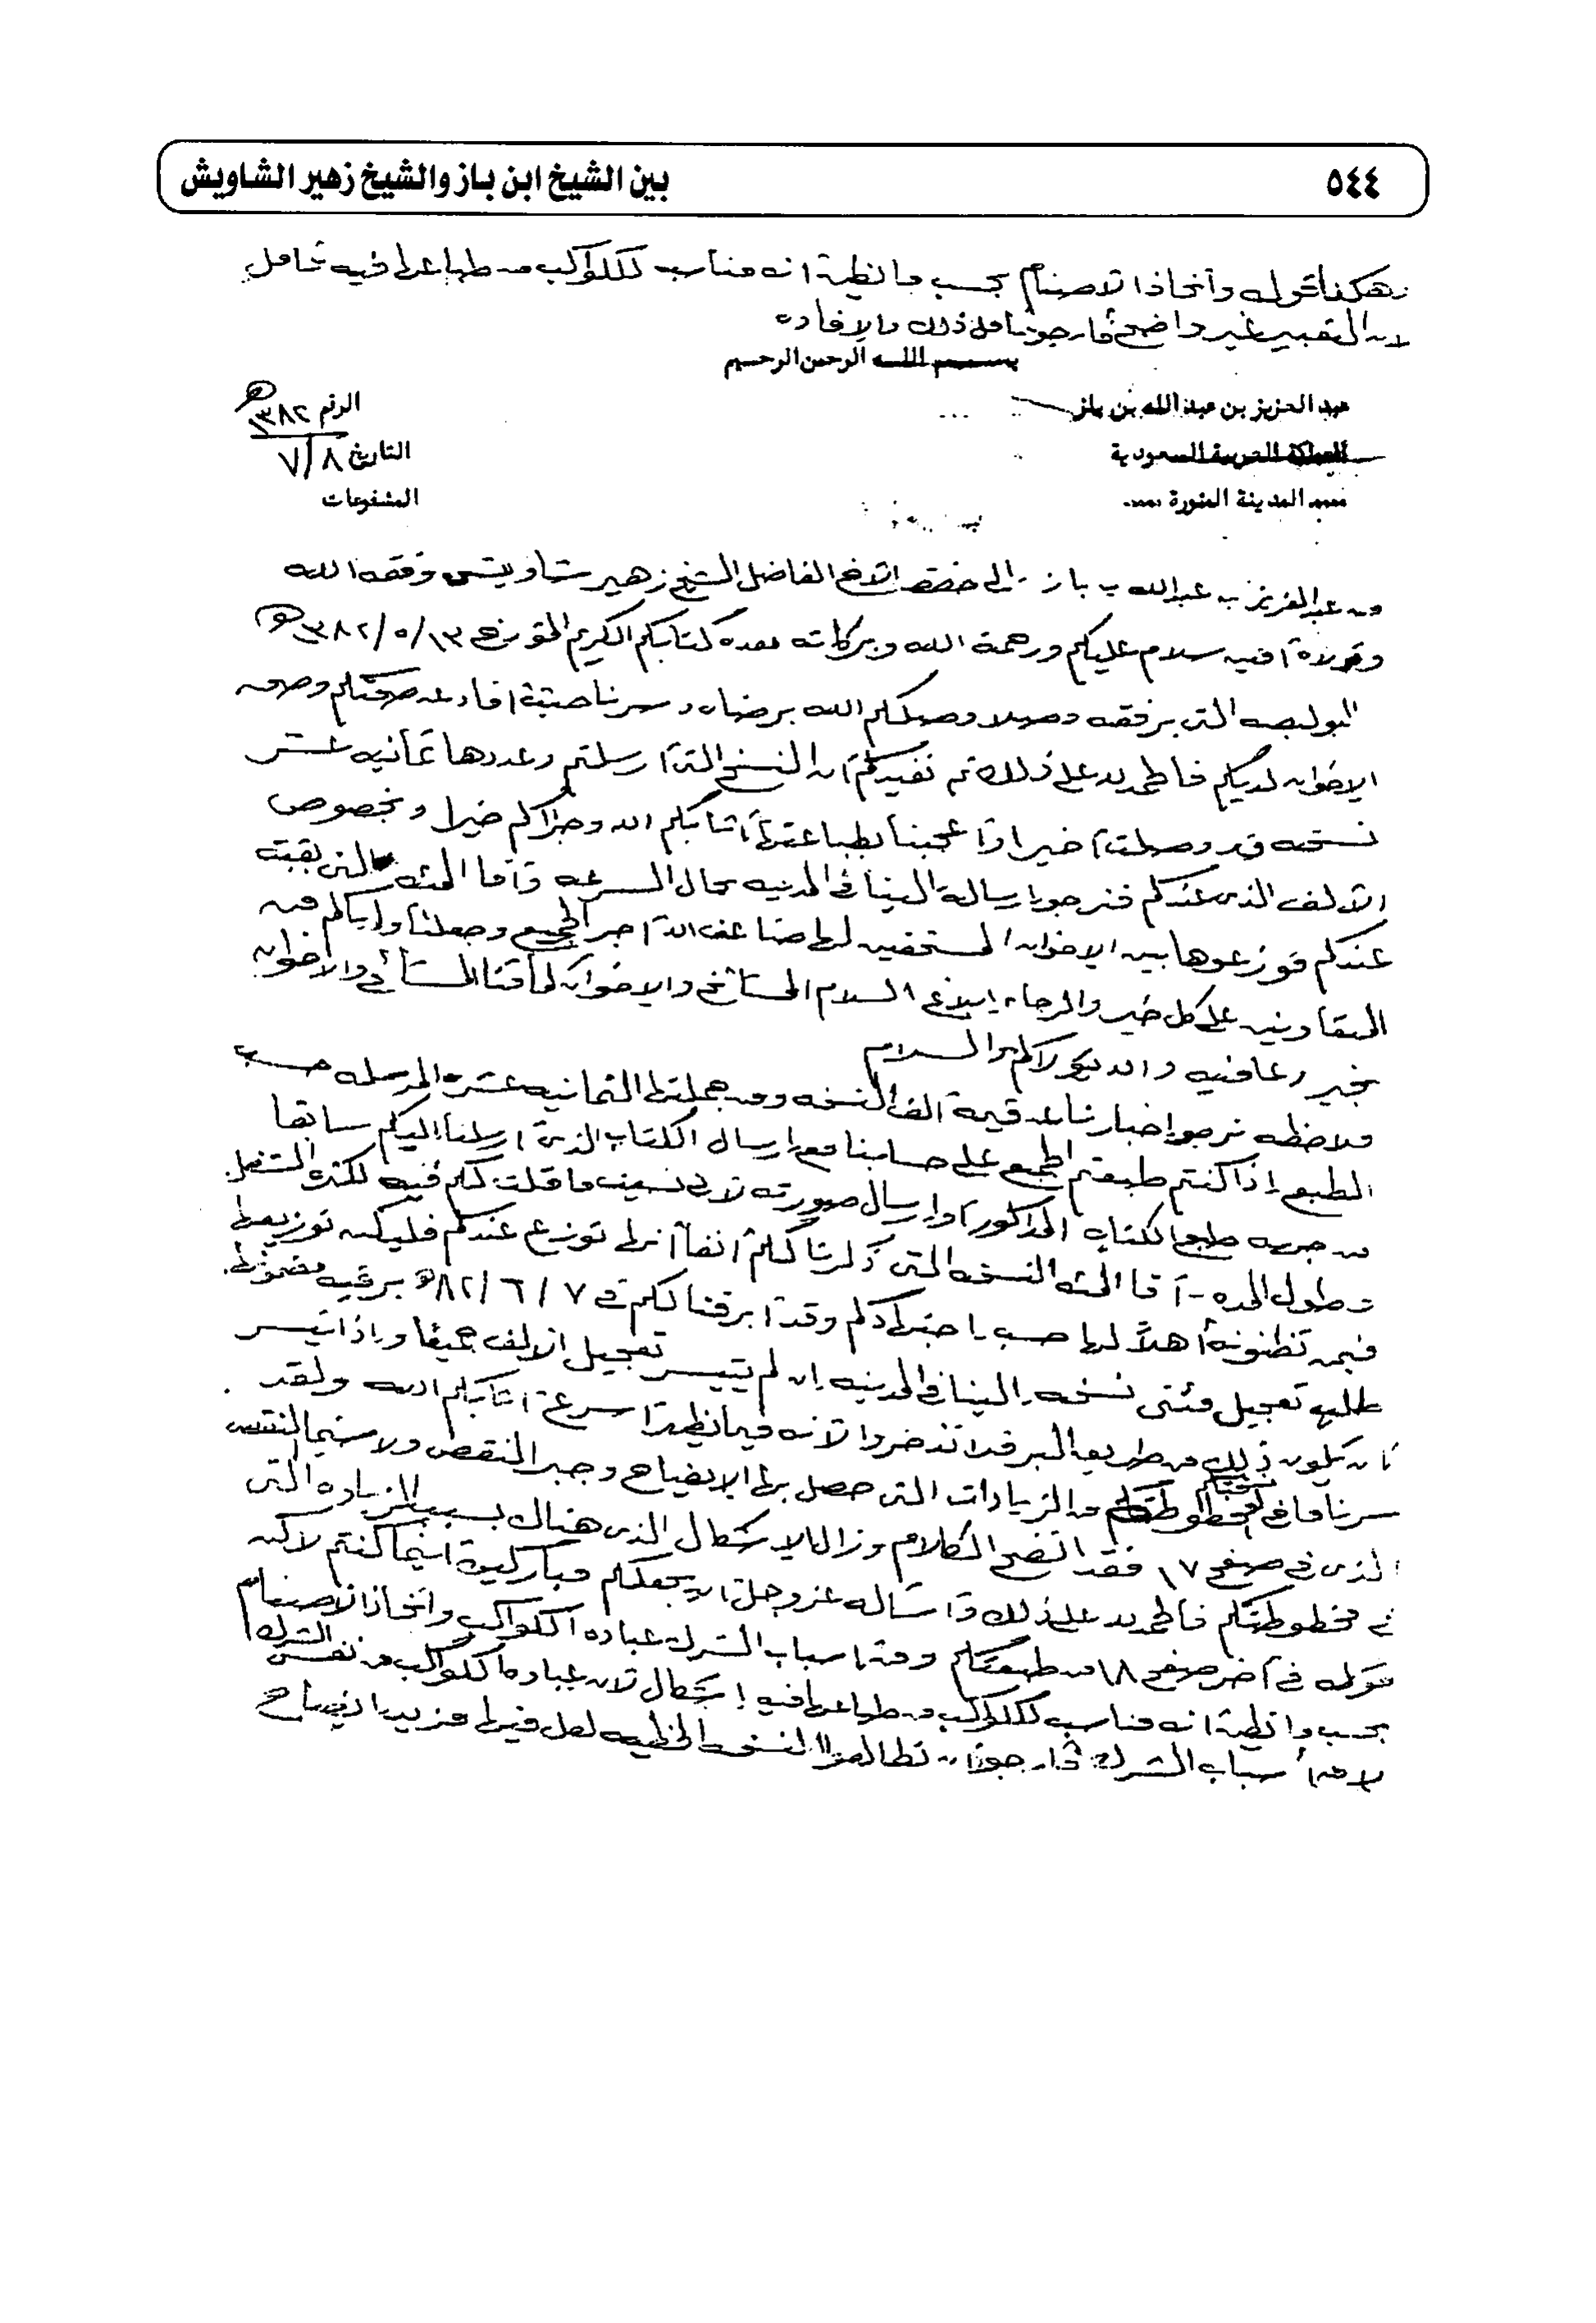 ٥٤٤
بين الشيخ ابن باز والشيخ زهير الشاويش
وهكذا قوله واتخاذ الاصنام بحسب ما يظنه انه مناسب للكواكب من طباعها فيه تأمل
لان التعبير غير واضح فأرجو تأمل ذلك والإفادة
بسم الله الرحمن الرحيم
عبد العزيز بن عبد الله بن باز
المملكة العربية السعودية
المدينة المنورة
الرقم ١٣٨٢هـ
التاريخ ٧/٨
المشفوعات
من عبدالعزيز بن عبدالله بن باز إلى حضرة الأخ الفاضل الشيخ زهير شاويش وفقه الله
وتولاه آمين سلام عليكم ورحمة الله وبركاته بعده كتابكم الكريم المؤرخ ١٣/٥/١٣٨٢هـ
البوليصه التي برفقه وصلا وصلكم الله برضاه وسرنا حيث افاد عن صحتكم وصحة
الإخوان لديكم فالحمد لله على ذلك ثم نفيدكم أن النسخ التي أرسلتم وعددها ثمانيه عشر
نسخه قد وصلت أخيرا وأعجبنا بطباعتها أثابكم الله وجزاكم خيرا وبخصوص
الألف الذي عندكم فنرجو إرساله الينا في المدينه بحال السرعه وأما المئه التي بقيت
عندكم فوزعوها بين الإخوان المستحقين لها ضاعف الله أجر الجميع وجعلنا وإياكم من
المتعاونين على كل خير والرجاء إبلاغ السلام المشائخ والإخوان كما منا المشائخ والإخوان
بخير وعافيه والله يتولاكم والسلام
ملاحظه نرجو إخبارنا عن قيمة الف النسخه ومن جملتها الثمانيه عشره المرسله حسب
الطبع إذا كنتم طبعتم الجميع على حسابنا مع إرسال الكتاب الذي أرسلنا إليكم سابقا
من جهة طبع الكتاب المذكور أو إرسال صورته لأني نسيت ما قلت لكم فيه لكثرة الشغل
وطول المده - أما المئه النسخه التي ذكرنا لكم آنفا أنها توزع عندكم فليكن توزيعها
فيمن تظنونه أهلا لها حسب اجتهادكم وقد أبرقنا لكم في ٧/٦/٨٢هـ برقيه مضمونها
طلب تعجيل مئتي نسخه إلينا في المدينه إن لم يتيسر تعجيل الألف جميعا وإذا تيسر
أن يكون ذلك من طريق البر فلا تدخروا لأنه فيما يظهر أسرع أثابكم الله ولقد
سرنا ما في نسختكم المخطوطه من الزيادات التي حصل بها الإيضاح وجبر النقص ولا سيما النقص
الذي في صفحة ١٧ فقد اتضح الكلام وزال الإشكال الذي هناك بسبب الزياده التي
في مخطوطتكم فالحمد لله على ذلك وأسأله عز وجل أن يجعلكم مباركين أينما كنتم لكن
قوله في آخر صفحة ١٨ من طبعتكم ومن أسباب الشرك عباده الكواكب واتخاذ الاصنام
بحسب ما يظنه أنه مناسب للكواكب من طباعها فيه إشكال لأن عباده الكواكب من نفس الشرك
لا من أسباب الشرك فأرجو أن تطالعوا النسخه الخطيه لعل فيها مزيد إيضاح